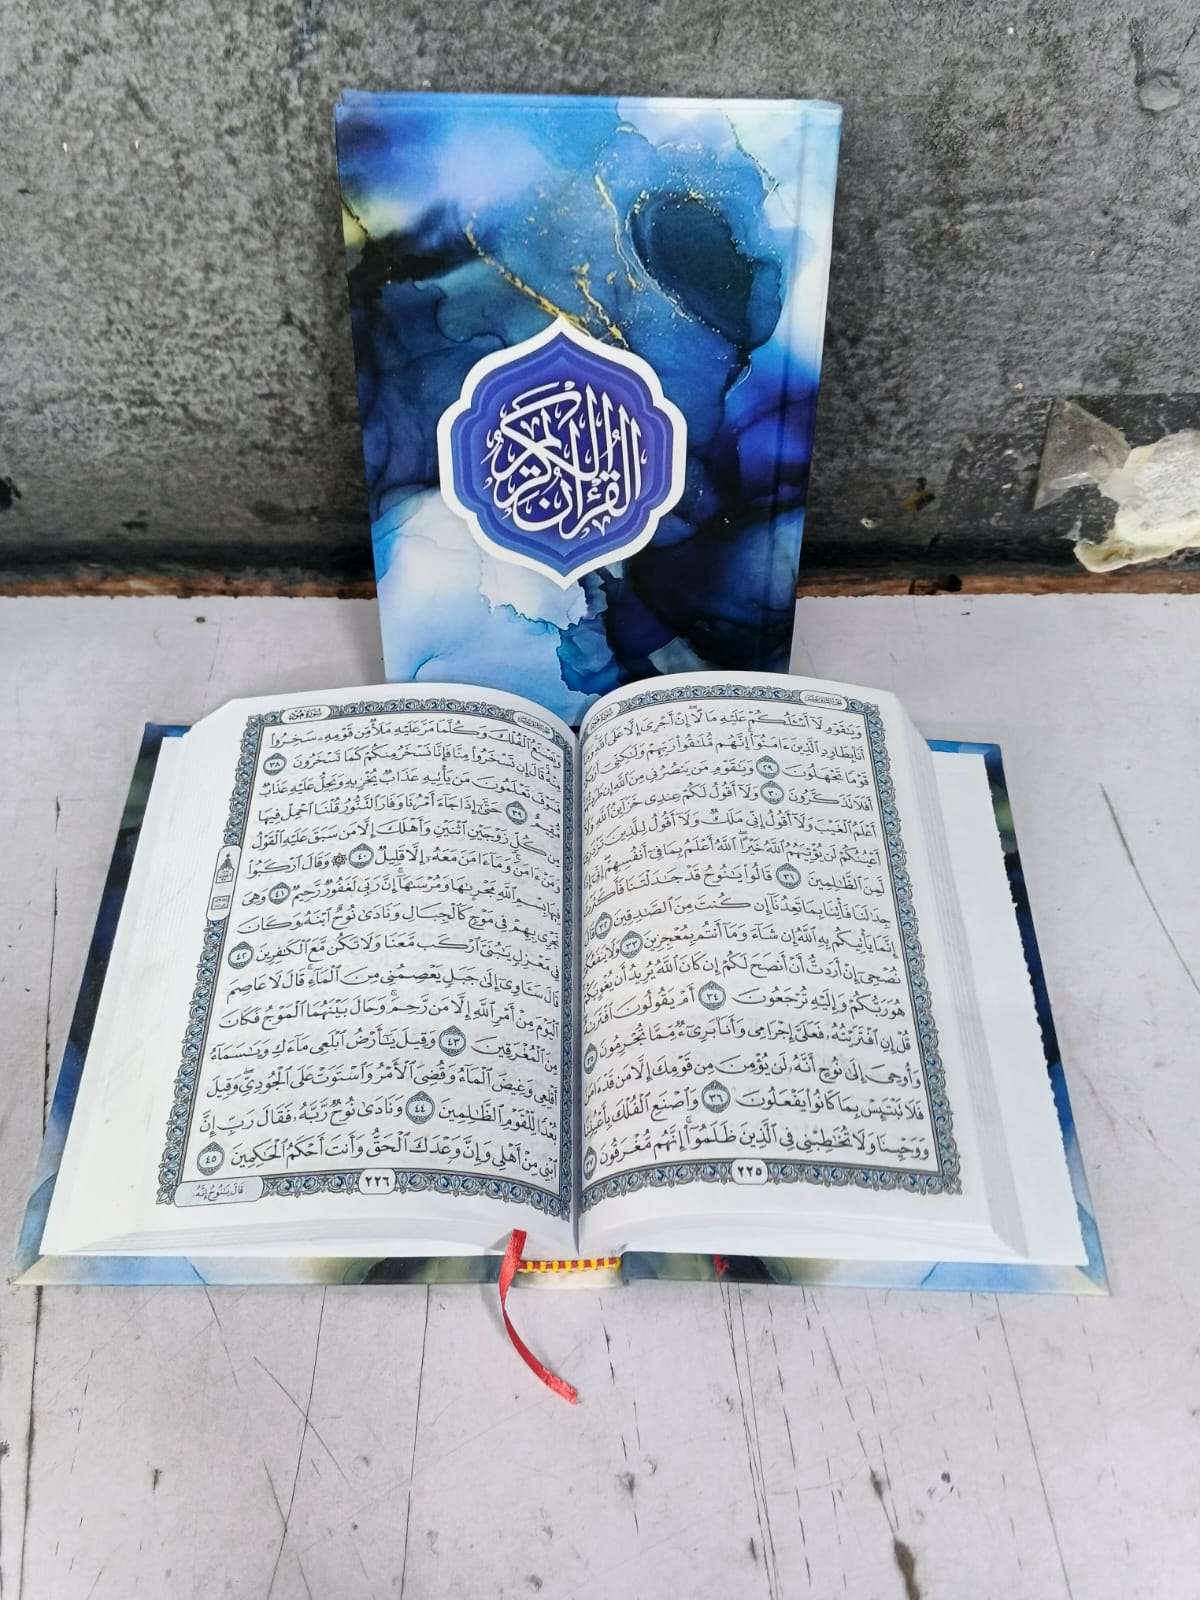 القرآن الكريم
الجزء الثاني عشر
سورة هود
وَيَٰقَوْمِ لَآ أَسْـَٔلُكُمْ عَلَيْهِ مَالًا ۖ إِنْ أَجْرِىَ إِلَّا عَلَى ٱللَّهِ ۚ
أَنَا۠ بِطَارِدِ ٱلَّذِينَ ءَامَنُوٓا۟ ۚ إِنَّهُم مُّلَٰقُوا۟ رَبِّهِمْ وَلَٰكِنِّىٓ
قَوْمًا تَجْهَلُونَ ٢٩ وَيَٰقَوْمِ مَن يَنصُرُنِى مِنَ ٱللَّهِ إِن طَرَدتُّهُمْ ۚ
أَفَلَا تَذَكَّرُونَ ٣٠ وَلَآ أَقُولُ لَكُمْ عِندِى خَزَآئِنُ ٱللَّهِ وَلَآ
أَعْلَمُ ٱلْغَيْبَ وَلَآ أَقُولُ إِنِّى مَلَكٌ وَلَآ أَقُولُ لِلَّذِينَ تَزْدَرِىٓ
أَعْيُنُكُمْ لَن يُؤْتِيَهُمُ ٱللَّهُ خَيْرًا ۖ ٱللَّهُ أَعْلَمُ بِمَا فِىٓ أَنفُسِهِمْ ۖ إِنِّىٓ إِذًا
لَّمِنَ ٱلظَّٰلِمِينَ ٣١ قَالُوا۟ يَٰنُوحُ قَدْ جَٰدَلْتَنَا فَأَكْثَرْتَ
جِدَٰلَنَا فَأْتِنَا بِمَا تَعِدُنَآ إِن كُنتَ مِنَ ٱلصَّٰدِقِينَ ٣٢ قَالَ
إِنَّمَا يَأْتِيكُم بِهِ ٱللَّهُ إِن شَآءَ وَمَآ أَنتُم بِمُعْجِزِينَ ٣٣ وَلَا يَنفَعُكُمْ
نُصْحِىٓ إِنْ أَرَدتُّ أَنْ أَنصَحَ لَكُمْ إِن كَانَ ٱللَّهُ يُرِيدُ أَن يُغْوِيَكُمْ ۚ
هُوَ رَبُّكُمْ وَإِلَيْهِ تُرْجَعُونَ ٣٤ أَمْ يَقُولُونَ ٱفْتَرَىٰهُ ۖ
قُلْ إِنِ ٱفْتَرَيْتُهُۥ فَعَلَىَّ إِجْرَامِى وَأَنَا۠ بَرِىٓءٌ مِّمَّا تُجْرِمُونَ ٣٥
وَأُوحِىَ إِلَىٰ نُوحٍ أَنَّهُۥ لَن يُؤْمِنَ مِن قَوْمِكَ إِلَّا مَن قَدْ ءَامَنَ
فَلَا تَبْتَئِسْ بِمَا كَانُوا۟ يَفْعَلُونَ ٣٦ وَٱصْنَعِ ٱلْفُلْكَ بِأَعْيُنِنَا
وَوَحْيِنَا وَلَا تُخَٰطِبْنِى فِى ٱلَّذِينَ ظَلَمُوٓا۟ ۚ إِنَّهُم مُّغْرَقُونَ ٣٧
٢٢٥
سورة هود
وَيَصْنَعُ ٱلْفُلْكَ وَكُلَّمَا مَرَّ عَلَيْهِ مَلَأٌ مِّن قَوْمِهِۦ سَخِرُوا۟
مِنْهُ ۚ قَالَ إِن تَسْخَرُوا۟ مِنَّا فَإِنَّا نَسْخَرُ مِنكُمْ كَمَا تَسْخَرُونَ ٣٨
فَسَوْفَ تَعْلَمُونَ مَن يَأْتِيهِ عَذَابٌ يُخْزِيهِ وَيَحِلُّ عَلَيْهِ عَذَابٌ
مُّقِيمٌ ٣٩ حَتَّىٰٓ إِذَا جَآءَ أَمْرُنَا وَفَارَ ٱلتَّنُّورُ قُلْنَا ٱحْمِلْ فِيهَا
مِن كُلٍّ زَوْجَيْنِ ٱثْنَيْنِ وَأَهْلَكَ إِلَّا مَن سَبَقَ عَلَيْهِ ٱلْقَوْلُ
وَمَنْ ءَامَنَ ۚ وَمَآ ءَامَنَ مَعَهُۥٓ إِلَّا قَلِيلٌ ٤٠ ۞ وَقَالَ ٱرْكَبُوا۟
فِيهَا بِسْمِ ٱللَّهِ مَجْر۪ىٰهَا وَمُرْسَىٰهَآ ۚ إِنَّ رَبِّى لَغَفُورٌ رَّحِيمٌ ٤١ وَهِىَ
تَجْرِى بِهِمْ فِى مَوْجٍ كَٱلْجِبَالِ وَنَادَىٰ نُوحٌ ٱبْنَهُۥ وَكَانَ
فِى مَعْزِلٍ يَٰبُنَىَّ ٱرْكَب مَّعَنَا وَلَا تَكُن مَّعَ ٱلْكَٰفِرِينَ ٤٢
قَالَ سَـَٔاوِىٓ إِلَىٰ جَبَلٍ يَعْصِمُنِى مِنَ ٱلْمَآءِ ۚ قَالَ لَا عَاصِمَ
ٱلْيَوْمَ مِنْ أَمْرِ ٱللَّهِ إِلَّا مَن رَّحِمَ ۚ وَحَالَ بَيْنَهُمَا ٱلْمَوْجُ فَكَانَ
مِنَ ٱلْمُغْرَقِينَ ٤٣ وَقِيلَ يَٰٓأَرْضُ ٱبْلَعِى مَآءَكِ وَيَٰسَمَآءُ
أَقْلِعِى وَغِيضَ ٱلْمَآءُ وَقُضِىَ ٱلْأَمْرُ وَٱسْتَوَتْ عَلَى ٱلْجُودِىِّ ۖ وَقِيلَ
بُعْدًا لِّلْقَوْمِ ٱلظَّٰلِمِينَ ٤٤ وَنَادَىٰ نُوحٌ رَّبَّهُۥ فَقَالَ رَبِّ إِنَّ
ٱبْنِى مِنْ أَهْلِى وَإِنَّ وَعْدَكَ ٱلْحَقُّ وَأَنتَ أَحْكَمُ ٱلْحَٰكِمِينَ ٤٥
٢٢٦
قَالَ يَٰنُوحُ إِنَّهُۥ